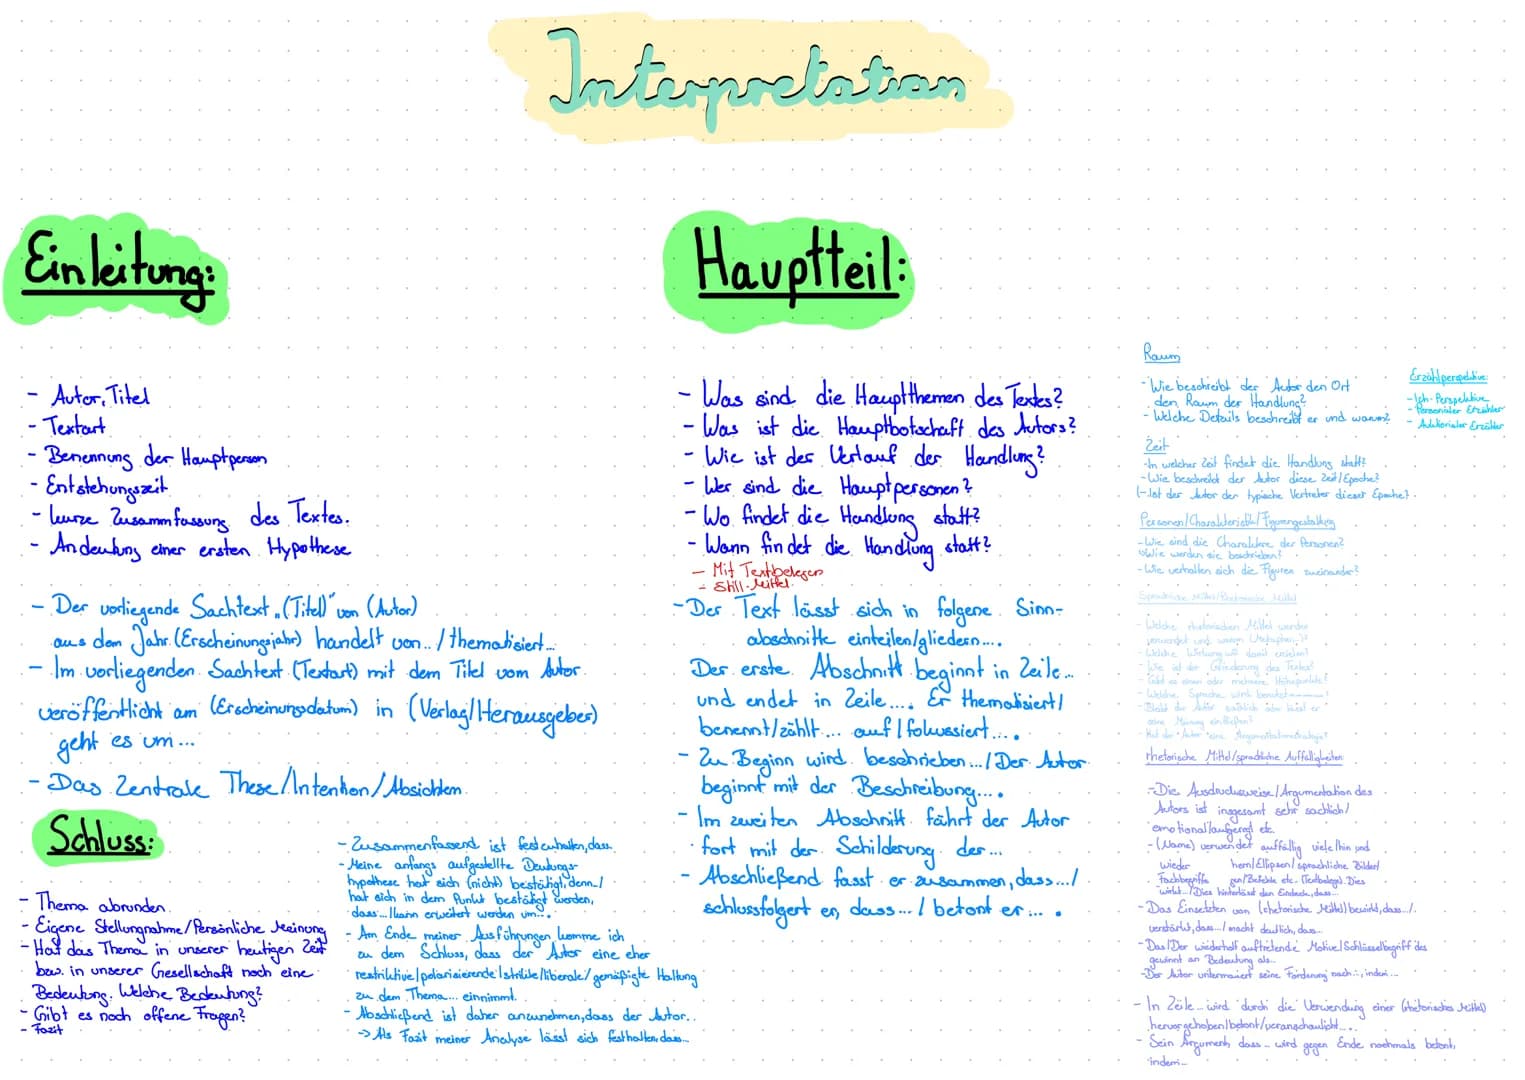 Interpretation
Einleitung:
- Autor, Titel
- Textart
- Benennung der Hauptperson
- Entstehungszeit
- kurze Zusammfassung des Textes.
- Andeutung einer ersten Hypothese
- Der vorliegende Sachtext „(Titel)" von (Autor)
aus dem Jahr (Erscheinungsjahr) handelt von.. / thematisiert...
- Im vorliegenden Sachtext (Textart) mit dem Titel vom Autor
veröffentlicht am (Erscheinungsdatum) in (Verlag/Herausgeber)
geht es um...
- Das Zentrale These/Intention/Absichten
Schluss:
- Thema abrunden
- Eigene Stellungnahme/Persönliche Meinung
- Hat das Thema in unserer heutigen Zeit
bzw. in unserer Gesellschaft noch eine
Bedeutung. Welche Bedeutung?
- Gibt es noch offene Fragen?
- Fazit
- Zusammenfassend ist festzuhalten, dass..
- Meine anfangs aufgestellte Deutungs-
hypothese hat sich (nicht) bestätigt, denn../
hat sich in dem Punkt bestätigt werden,
dass.../kann erweitert werden um...
- Am Ende meiner Ausführungen komme ich
zu dem Schluss, dass der Autor eine eher
restriktive/polarisierende/strikte/liberale/gemäßigte Haltung
zu dem Thema... einnimmt.
- Abschließend ist daher anzunehmen, dass der Autor..
-> Als Fazit meiner Analyse lässt sich festhalten, dass...
Hauptteil:
- Was sind die Hauptthemen des Textes?
- Was ist die Hauptbotschaft des Autors?
- Wie ist der Verlauf der Handlung?
- Wer sind die Hauptpersonen?
- Wo findet die Handlung statt?
- Wann findet die Handlung statt?
- Mit Textbelegen
- Still-Mittel
- Der Text lässt sich in folgene Sinn-
abschnitte einteilen/gliedern....
Der erste Abschnitt beginnt in Zeile...
und endet in Zeile.... Er thematisiert/
benennt/zählt... auf/fokussiert....
- Zu Beginn wird beschrieben.../Der Autor
beginnt mit der Beschreibung....
- Im zweiten Abschnitt fährt der Autor
fort mit der Schilderung der...
- Abschließend fasst er zusammen, dass.../
schlussfolgert er, dass... / betont er....
Raum
- Wie beschreibt der Autor den Ort
den Raum der Handlung?
- Welche Details beschreibt er und warum?
Erzählperspektive:
- Ich-Perspektive
- Personaler Erzähler
- Auktorialer Erzähler
Zeit
- In welcher Zeit findet die Handlung statt?
- Wie beschreibt der Autor diese Zeit/Epoche?
(- Ist der Autor der typische Vertreter dieser Epoche?
Personen/Charakteristik/Figurengestaltung
- Wie sind die Charaktere der Personen?
Wie werden sie beschrieben?
- Wie verhalten sich die Figuren zueinander?
Sprachliche Mittel/Rhetorische Mittel
- Welche rhetorischen Mittel werden
verwendet und warum (Metaphern,)?
- Welche Wirkung will damit erzielen?
- Wie ist der Gliederung des Textes?
- Gibt es einen oder mehrere Höhepunkte?
- Welche Sprache wird benutzt
- Bleibt der Autor sachlich oder lässt er
seine Meinung einfließen?
- Hat der Autor eine Argumentationsstrategie?
rhetorische Mittel/sprachliche Auffälligkeiten
- Die Ausdrucksweise/Argumentation des
Autors ist insgesamt sehr sachlich/
emotional/aufgeregt etc.
- (Name) verwendet auffällig viele/hin und
wieder hern/Ellipsen/sprachliche Bilder/
Fachbegriffe gen/Befehle etc. (Textbelege). Dies
wirkt.../Dies hinterlässt den Eindruck, dass...
- Das Einsetzten von (rhetorische Mittel) bewirkt, dass.../
verstärkt, dass.../macht deutlich, dass...
- Das/Der wiederholt auftretende Motive/Schlüsselbegriff des
gewinnt an Bedeutung als...
- Der Autor untermauert seine Forderung nach.., indem...
- In Zeile... wird durch die Verwendung einer (rhetorisches Mittel)
hervorgehoben/betont/veranschaulicht...
- Sein Argument, dass... wird gegen Ende nochmals betont,
indem...